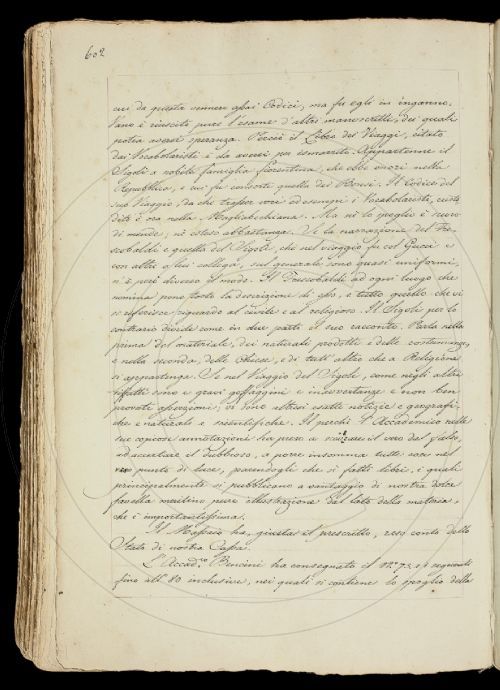 602
cui da questa vennero assai Codici, ma fu egli in inganno.
Vano è riuscito pure l'esame d'altri manoscritti, dei quali
potea aversi speranza. Perciò il Libro dei Viaggi, citato
dai Vocabolaristi è da aversi per ismarrito. Appartenne il
Sigoli a nobile famiglia fiorentina, che ebbe onori nella
Repubblica, e cui fu consorte quella dei Il Codice del
suo Viaggio, da che trasser voci ed esempi i Vocabolaristi,
è ora nella Magliabechiana. Ma nè lo spoglio è scevro
di mende, nè esteso abbastanza. Se la narrazione del Fre-
scobaldi e quella del Sigoli, che nel viaggio fu col Gucci e
con altri a lui collega, sul generale sono quasi uniformi,
n'è però diverso il modo. Il Frescobaldi ad ogni luogo che
nomina pone tosto la descrizione di esso, e tutto quello che vi
si riferisce riguardo al civile e al religioso. Il Sigoli per lo
contrario divide come in due parti il suo racconto. Parla nella
prima del materiale, dei naturali prodotti e delle costumanze,
e nella seconda, delle Chiese, e di tutt'altro che a Religione
si appartenga. Se nel Viaggio del Sigoli, come negli altri
sì fatti sono e gravi goffaggini e inavvertenze e non ben
provate asserzioni; vi sono altresì esatte notizie e geografi-
che e naturali e scientifiche. Il perchè l'Accademico nelle
sue copiose annotazioni ha preso a il vero dal falso,
ad accertare il dubbioso, a porre insomma tutte cose nel
vero punto di luce, parendogli che sì fatti libri, i quali
principalmente si pubblicano a vantaggio di nostra dolce
favella meritino pure illustrazione dal lato della materia,
che è importantissima.
Il Massaio ha, giusta il prescritto, reso conto dello
Stato di nostra Cassa.
L'Accad.co Bencini ha consegnato il N.o 73. e i seguenti
fino all' 80 inclusive, nei quali si contiene lo spoglio della